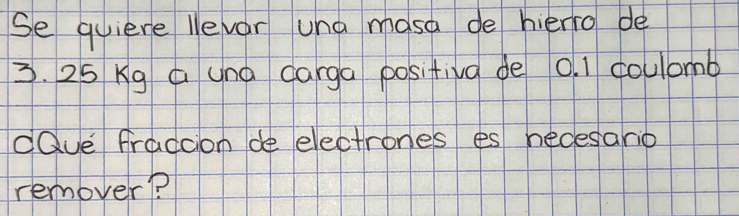 Se quiere llevar una masa de hierro de
3.25 Kg a una carga positiva de 0.1 coulomb
¿Qué fraccion de electrones es necesario
remover?